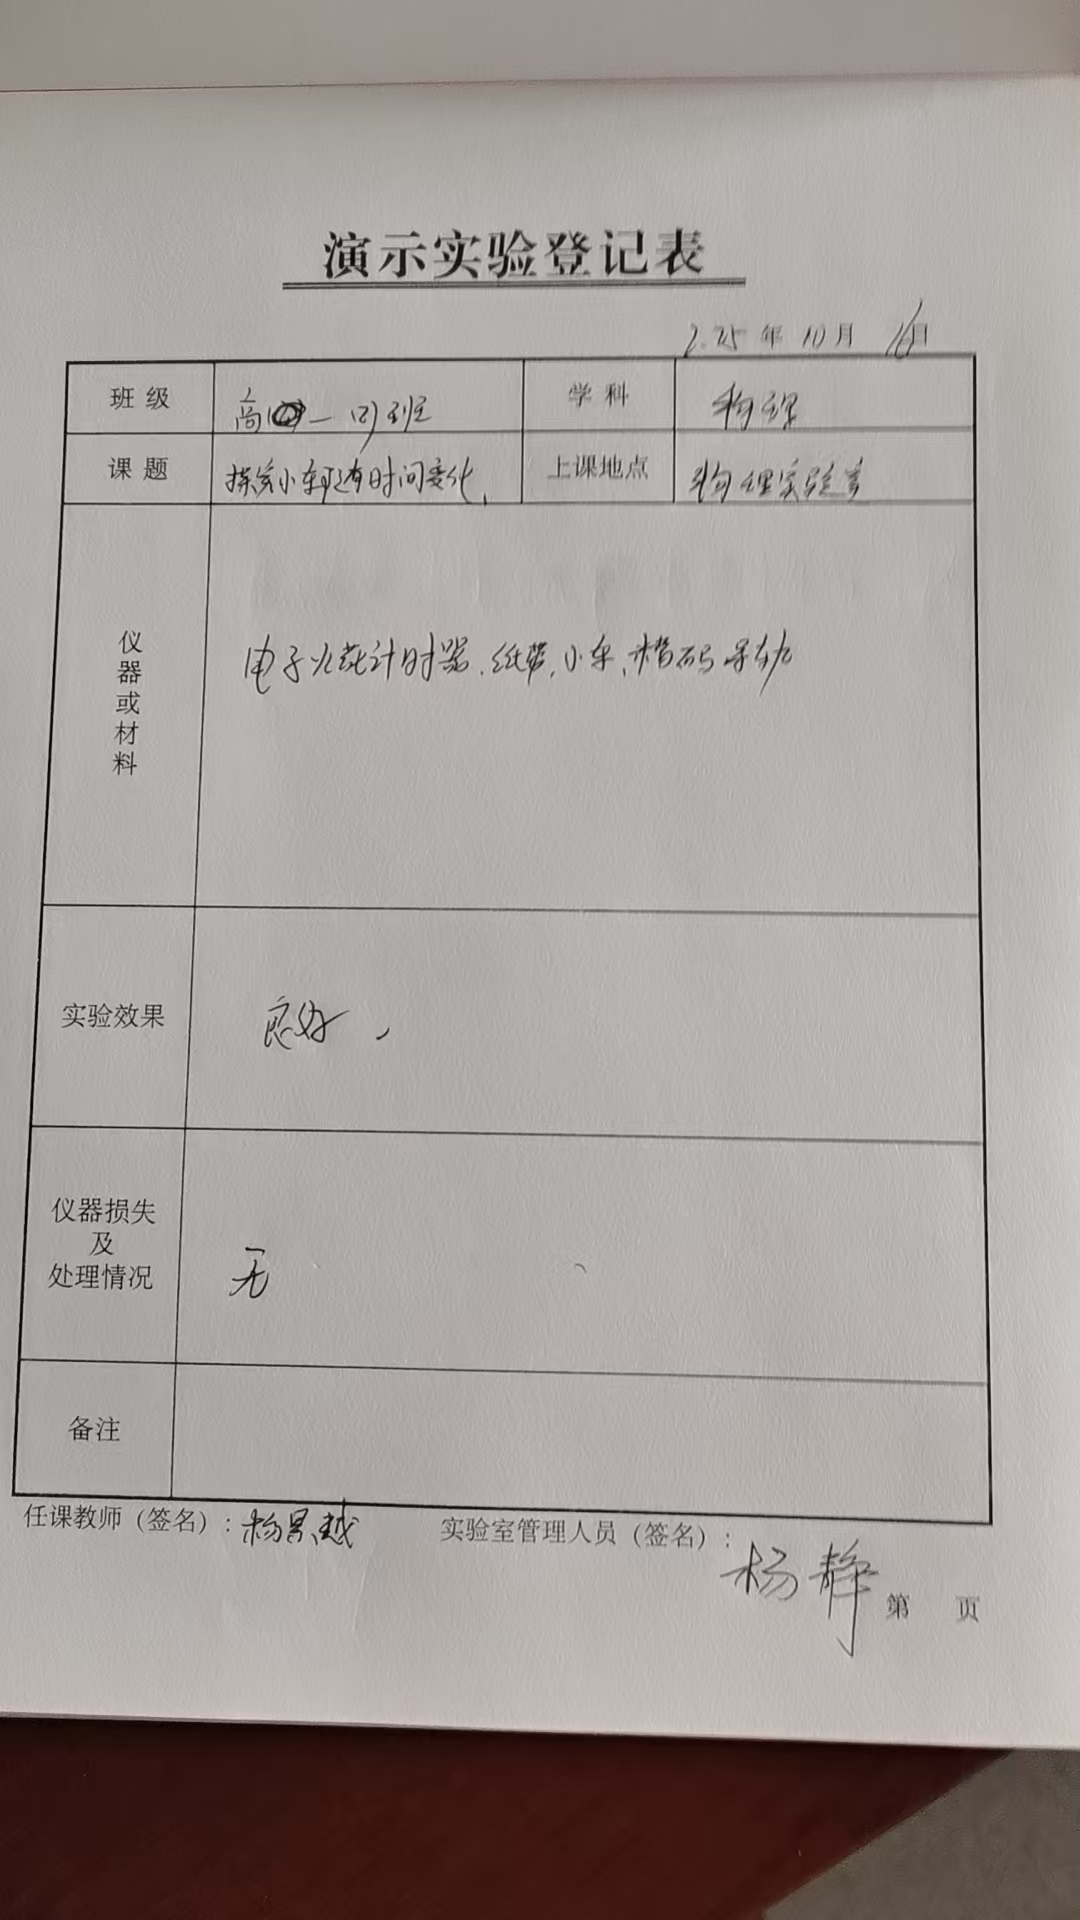 演示实验登记表
2025年10月16日
班级 高一 班 学科 物理
课题 探究小车速度随时间变化 上课地点 物理实验室
仪器或材料 电子火花计时器、纸带、小车、槽码 导轨
实验效果 良好,
仪器损失
及
处理情况 无
备注
任课教师(签名): 杨景越 实验室管理人员(签名): 杨静
第 页